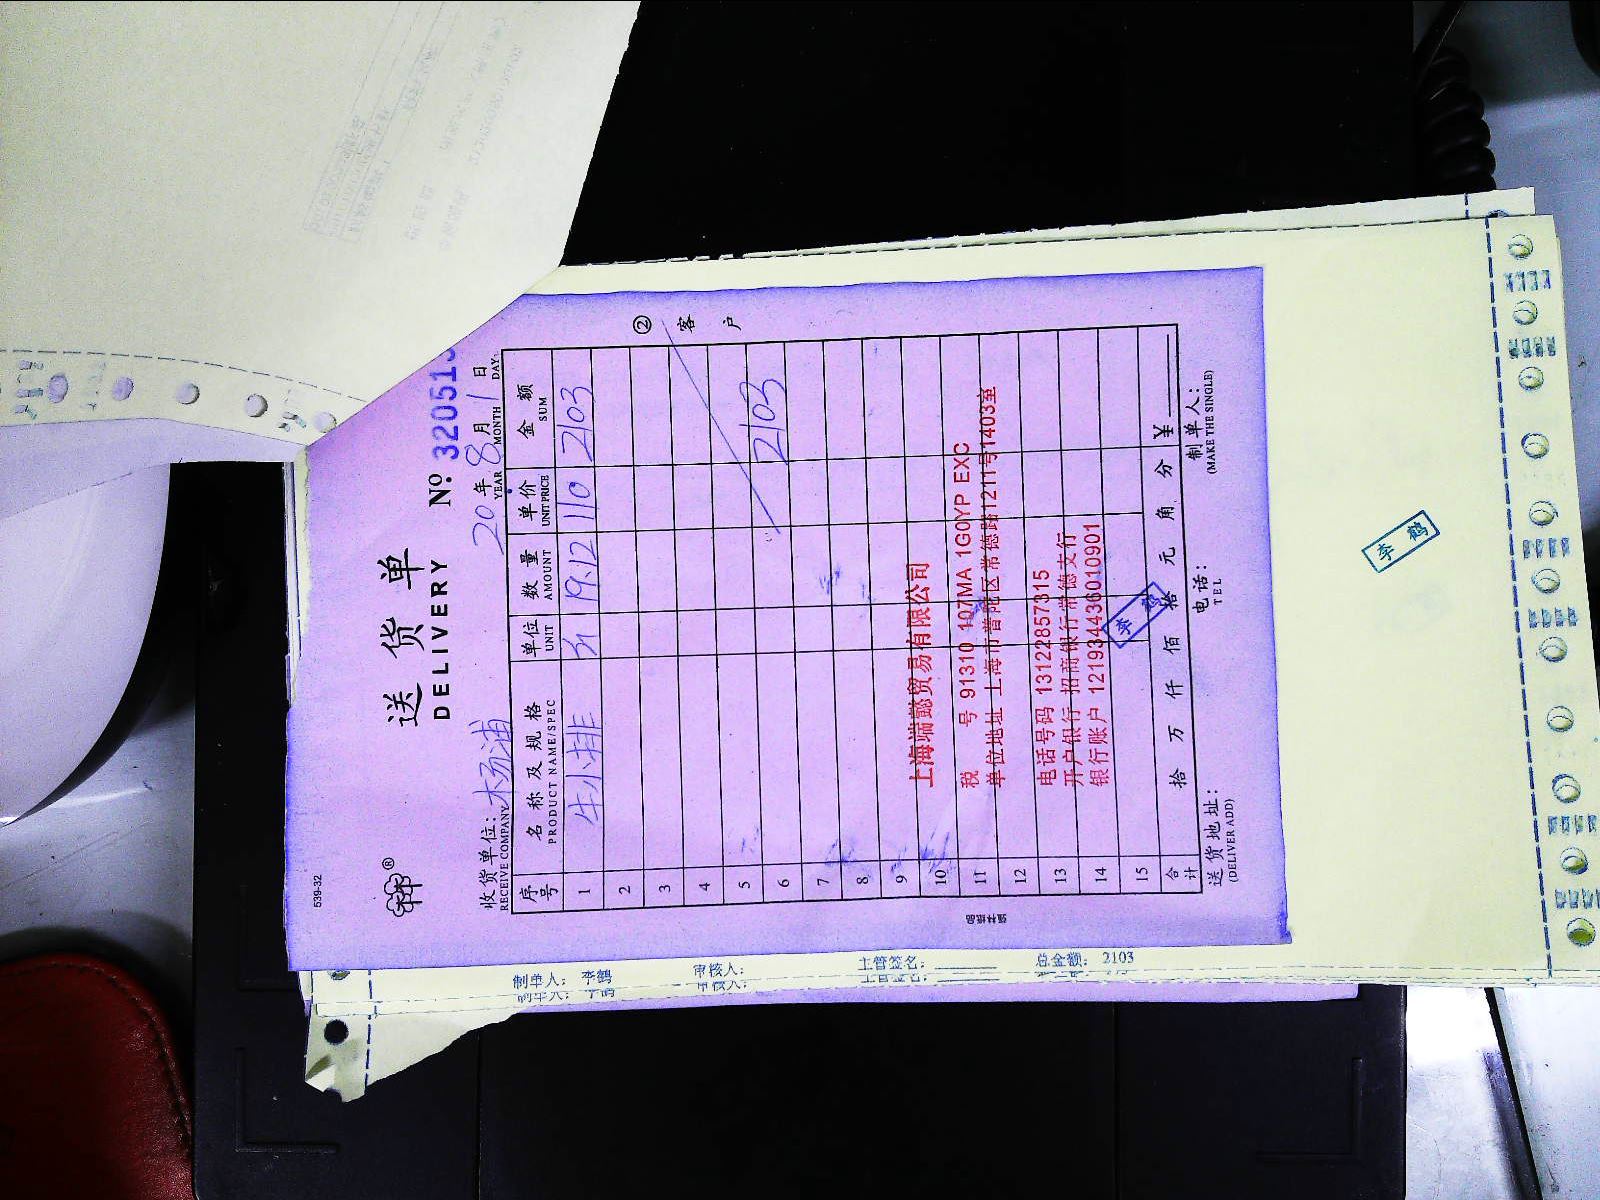 539-32
送货单
DELIVERY
№ 320515
收货单位: 杨浦
RECEIVE COMPANY
20 年 8 月 1 日
YEAR MONTH DAY
序号 名称及规格 单位 数量 单价 金额
PRODUCT NAME/SPEC UNIT AMOUNT UNIT PRICE SUM
1 牛小排 斤 19.12 110 2103
2
3
4
5
6 2103
7
8
9
10
11
12
13
14
15
② 客户
上海端懿贸易有限公司
税 号 91310 107MA 1G0YP EXC
单位地址 上海市普陀区常德路1211号1403室
电话号码 13122857315
开户银行 招商银行常德支行
银行账户 121934436010901
李鹤
合计 拾 万 仟 佰 拾 元 角 分 ¥
送货地址: 电话: 制单人:
(DELIVER ADD) TEL (MAKE THE SINGLE)
制单人: 李鹤 审核人: 主管签名: 总金额: 2103
制单人: 李鹤 审核人: 主管签名:
李鹤